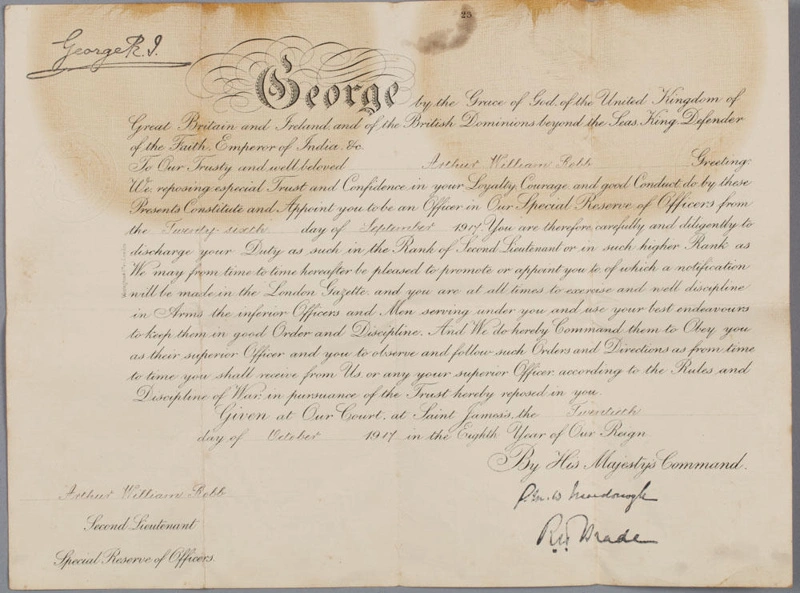 25
George R.I.
George by the Grace of God, of the United Kingdom of
Great Britain and Ireland, and of the British Dominions beyond the Seas, King, Defender
of the Faith, Emperor of India, &c.
To Our Trusty and well beloved Arthur William Robb Greeting:
We, reposing especial Trust and Confidence in your Loyalty, Courage, and good Conduct, do by these
Presents Constitute and Appoint you to be an Officer in Our Special Reserve of Officers from
the Twenty sixth day of September 1917. You are therefore carefully and diligently to
discharge your Duty as such in the Rank of Second Lieutenant or in such higher Rank as
We may from time to time hereafter be pleased to promote or appoint you to, of which a notification
will be made in the London Gazette, and you are at all times to exercise and well discipline
in Arms the inferior Officers and Men serving under you and use your best endeavours
to keep them in good Order and Discipline. And We do hereby Command them to Obey you
as their superior Officer and you to observe and follow such Orders and Directions as from time
to time you shall receive from Us, or any your superior Officer, according to the Rules and
Discipline of War, in pursuance of the Trust hereby reposed in you.
Given at Our Court, at Saint James's, the Twentieth
day of October 1917 in the Eighth Year of Our Reign
By His Majesty's Command.
Arthur William Robb
Second Lieutenant
Special Reserve of Officers.
R.H. Brade